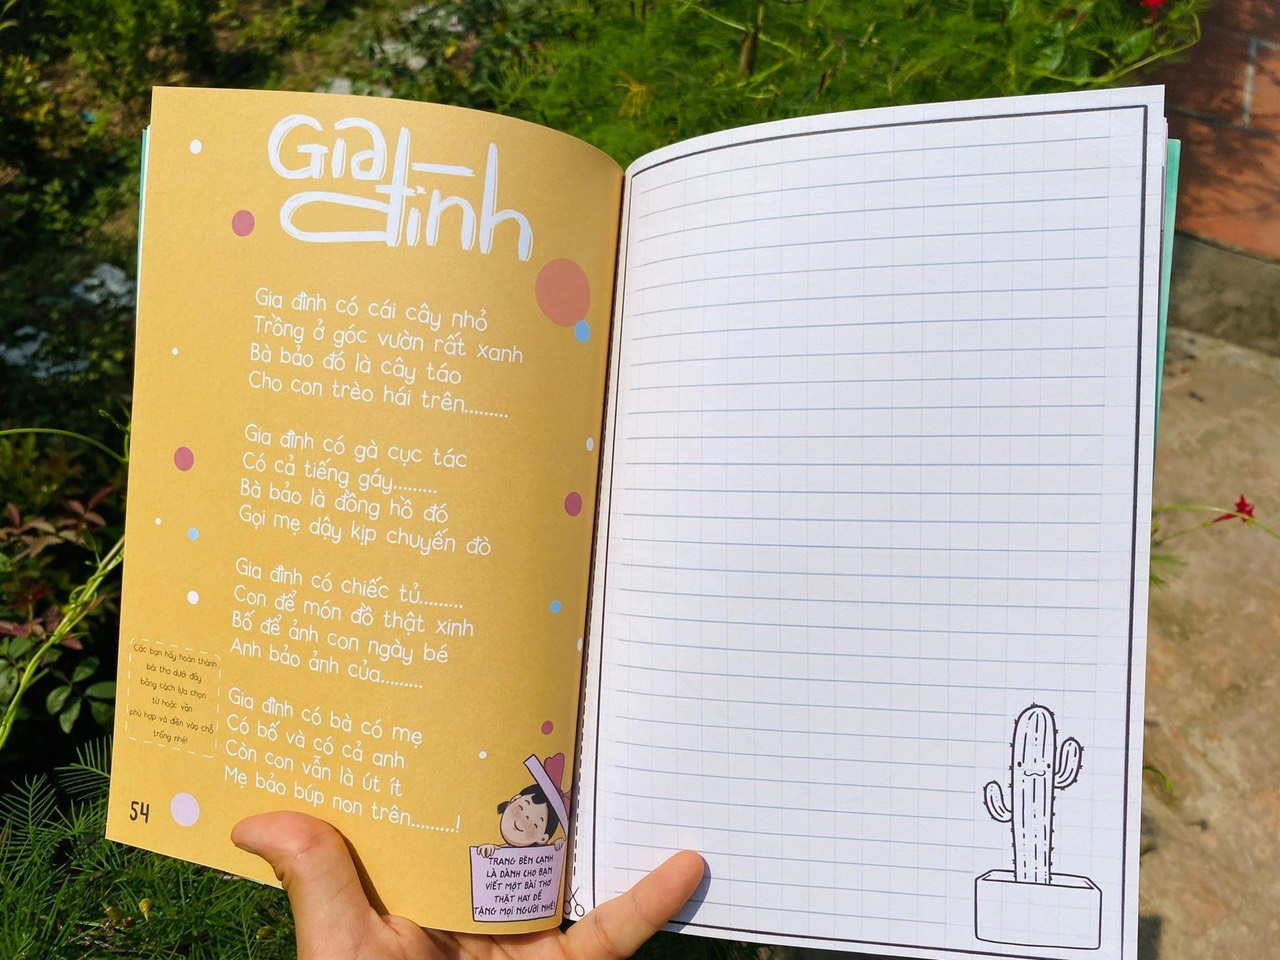 Gia
đình
Gia đình có cái cây nhỏ
Trồng ở góc vườn rất xanh
Bà bảo đó là cây táo
Cho con trèo hái trên.........
Gia đình có gà cục tác
Có cả tiếng gáy.........
Bà bảo là đồng hồ đó
Gọi mẹ dậy kịp chuyến đò
Gia đình có chiếc tủ.........
Con để món đồ thật xinh
Bố để ảnh con ngày bé
Anh bảo ảnh của.........
Gia đình có bà có mẹ
Có bố và có cả anh
Còn con vẫn là út ít
Mẹ bảo búp non trên.........!
Các bạn hãy hoàn thành
bài thơ dưới đây
bằng cách lựa chọn
từ hoặc vần
phù hợp và điền vào chỗ
trống nhé!
54
TRANG BÊN CẠNH
LÀ DÀNH CHO BẠN
VIẾT MỘT BÀI THƠ
THẬT HAY ĐỂ
TẶNG MỌI NGƯỜI NHÉ!